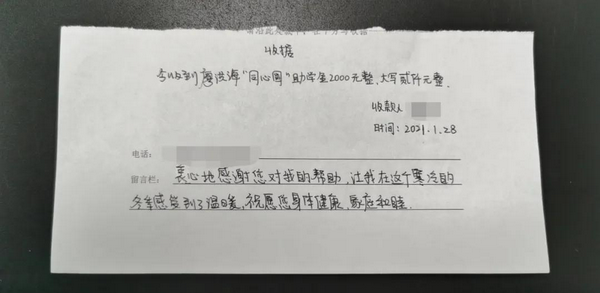 收据
今收到廖洪海“同心圆”助学金2000元整,大写贰仟元整.
收款人
时间: 2021.1.28
电话:
留言栏: 衷心地感谢您对我的帮助,让我在这个寒冷的
冬季感受到了温暖,祝愿您身体健康,家庭和睦.